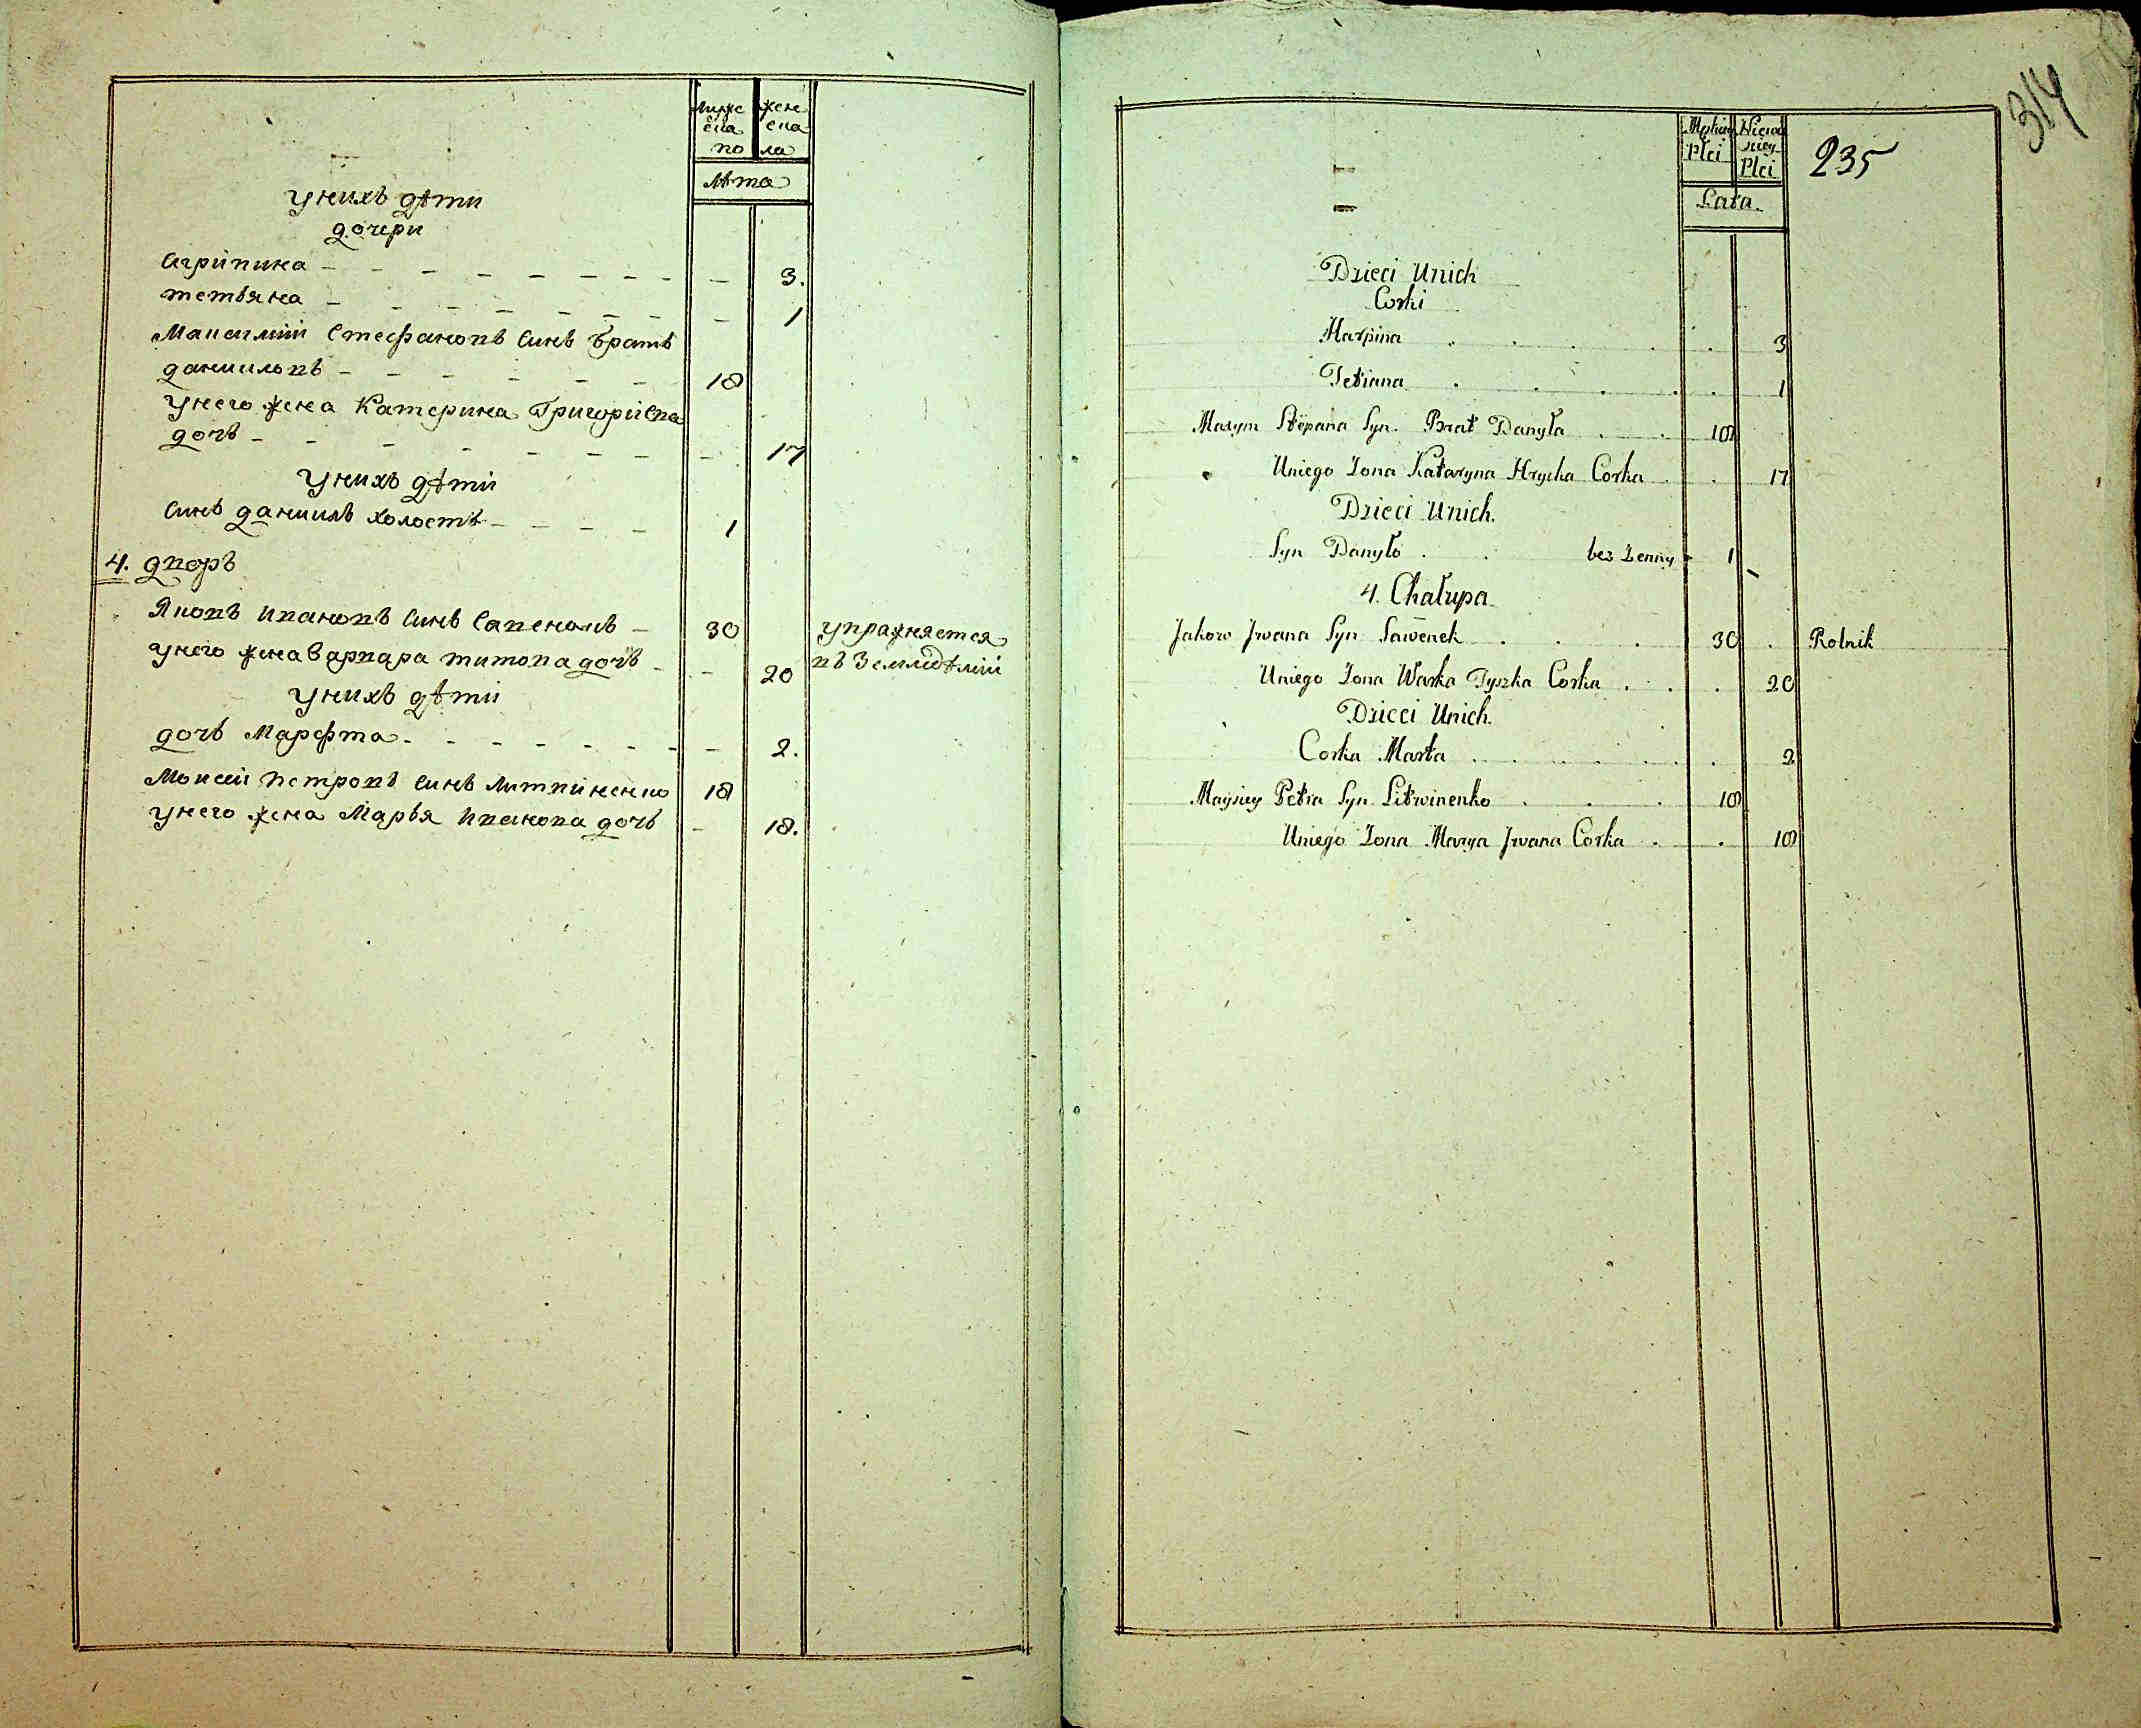 мужеска
женска
пола
лѣта
У нихъ дѣти
дочери
Агрипина - 3.
тетьяна - 1
Максимій Стефановъ Синъ братъ
данииловъ - 18
У него жена Катерина Григоріева
дочь - 17
У нихъ дѣти
Синъ данииль холостъ - 1
4. дворъ
Яковъ Ивановъ Синъ Савенокъ - 30 упражняется
У него жена Варвара титова дочь - 20 въ Земледѣлій
У нихъ дѣти
дочь Марфта - 2.
Моисей Петровъ Синъ Литвиненко 18
У него жена Марья Иванова дочь - 18.
314
235
Męskiey Płci
Niewiesciey Płci
Lata.
Dzieci Unich
Corki
Harpina 3
Tetiana 1
Maxym Stepana Syn. Brat Danyła 18
Uniego Zona Kataryna Hryćka Corka 17
Dzieci Unich.
Syn Danyło bez Zenny 1
4. Chałupa
Jakow Jwana Syn Sawenek 30 Rolnik
Uniego Zona Warka Tyszka Corka 20
Dzieci Unich.
Corka Marta 2
Maysiey Petra Syn Litwinenko 18
Uniego Zona Marya Jwana Corka 18